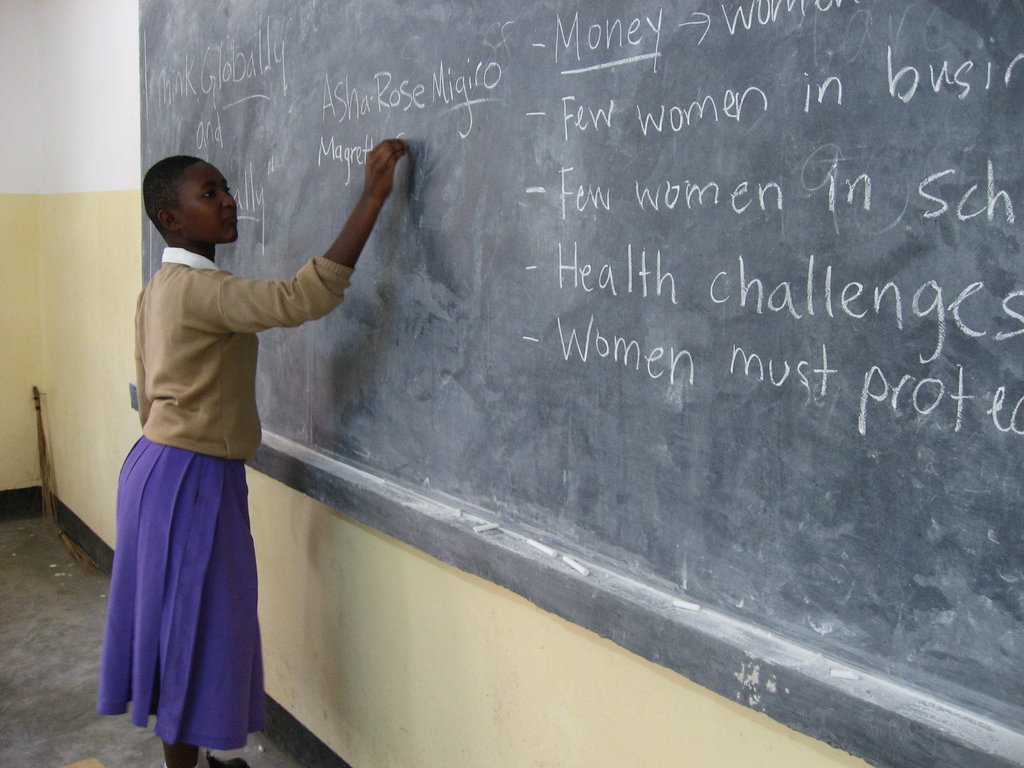 Think Globally
and
Asha-Rose Migiro
Magret
- Money → women
- Few women in busin
- Few women in sch
- Health challenges
- Women must protec